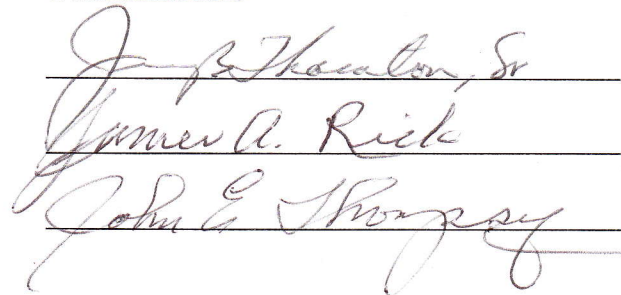 James B. Thornton, Sr
James A. Rick
John E Thompson